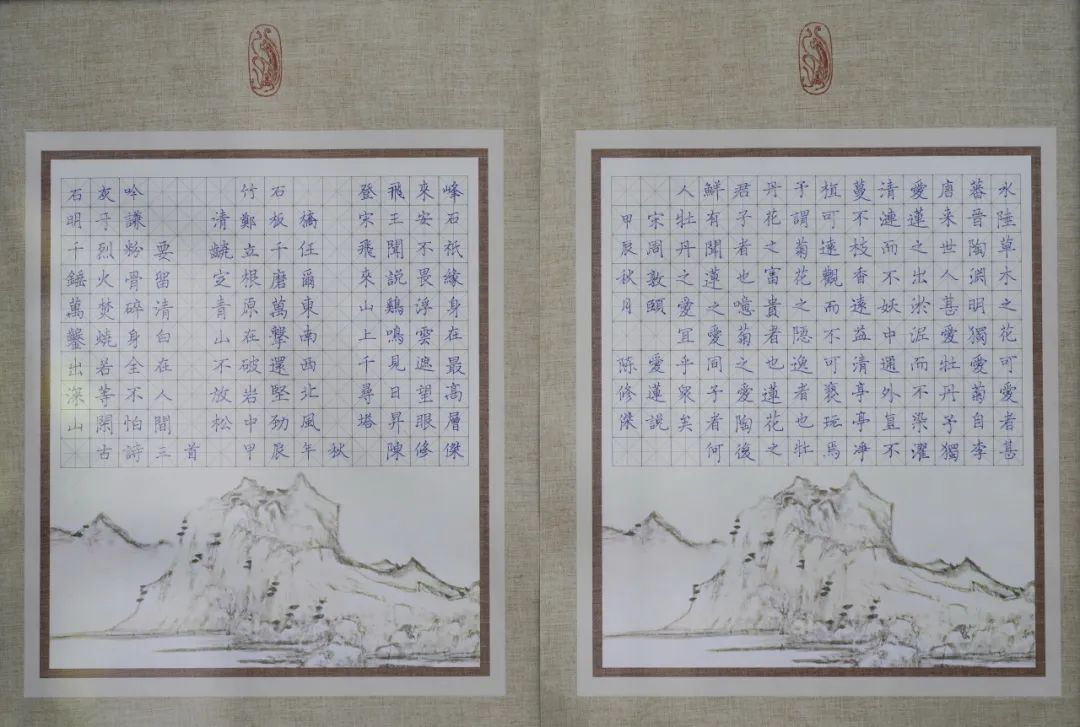 石明千錘萬鑿出深山
灰于烈火焚燒若等閑古
吟謙粉骨碎身全不怕詩
要留清白在人間三
首
清齩定青山不放松
竹鄭立根原在破岩中甲
石板千磨萬擊還堅劲辰
橋任爾東南西北風年
秋
登宋飛來山上千尋塔
飛王聞説鷄鳴見日昇陳
來安不畏浮雲遮望眼修
峰石祇緣身在最高層傑
水陸草木之花可愛者甚
蕃晉陶淵明獨愛菊自李
唐来世人甚愛牡丹予獨
愛蓮之出淤泥而不染濯
清漣而不妖中通外直不
蔓不枝香遠益清亭亭凈
植可遠觀而不可褻玩焉
予謂菊花之隱逸者也牡
丹花之富貴者也蓮花之
君子者也噫菊之愛陶後
鮮有聞蓮之愛同予者何
人牡丹之愛宜乎衆矣
宋周敦頤 愛蓮説
甲辰秋月 陳修傑